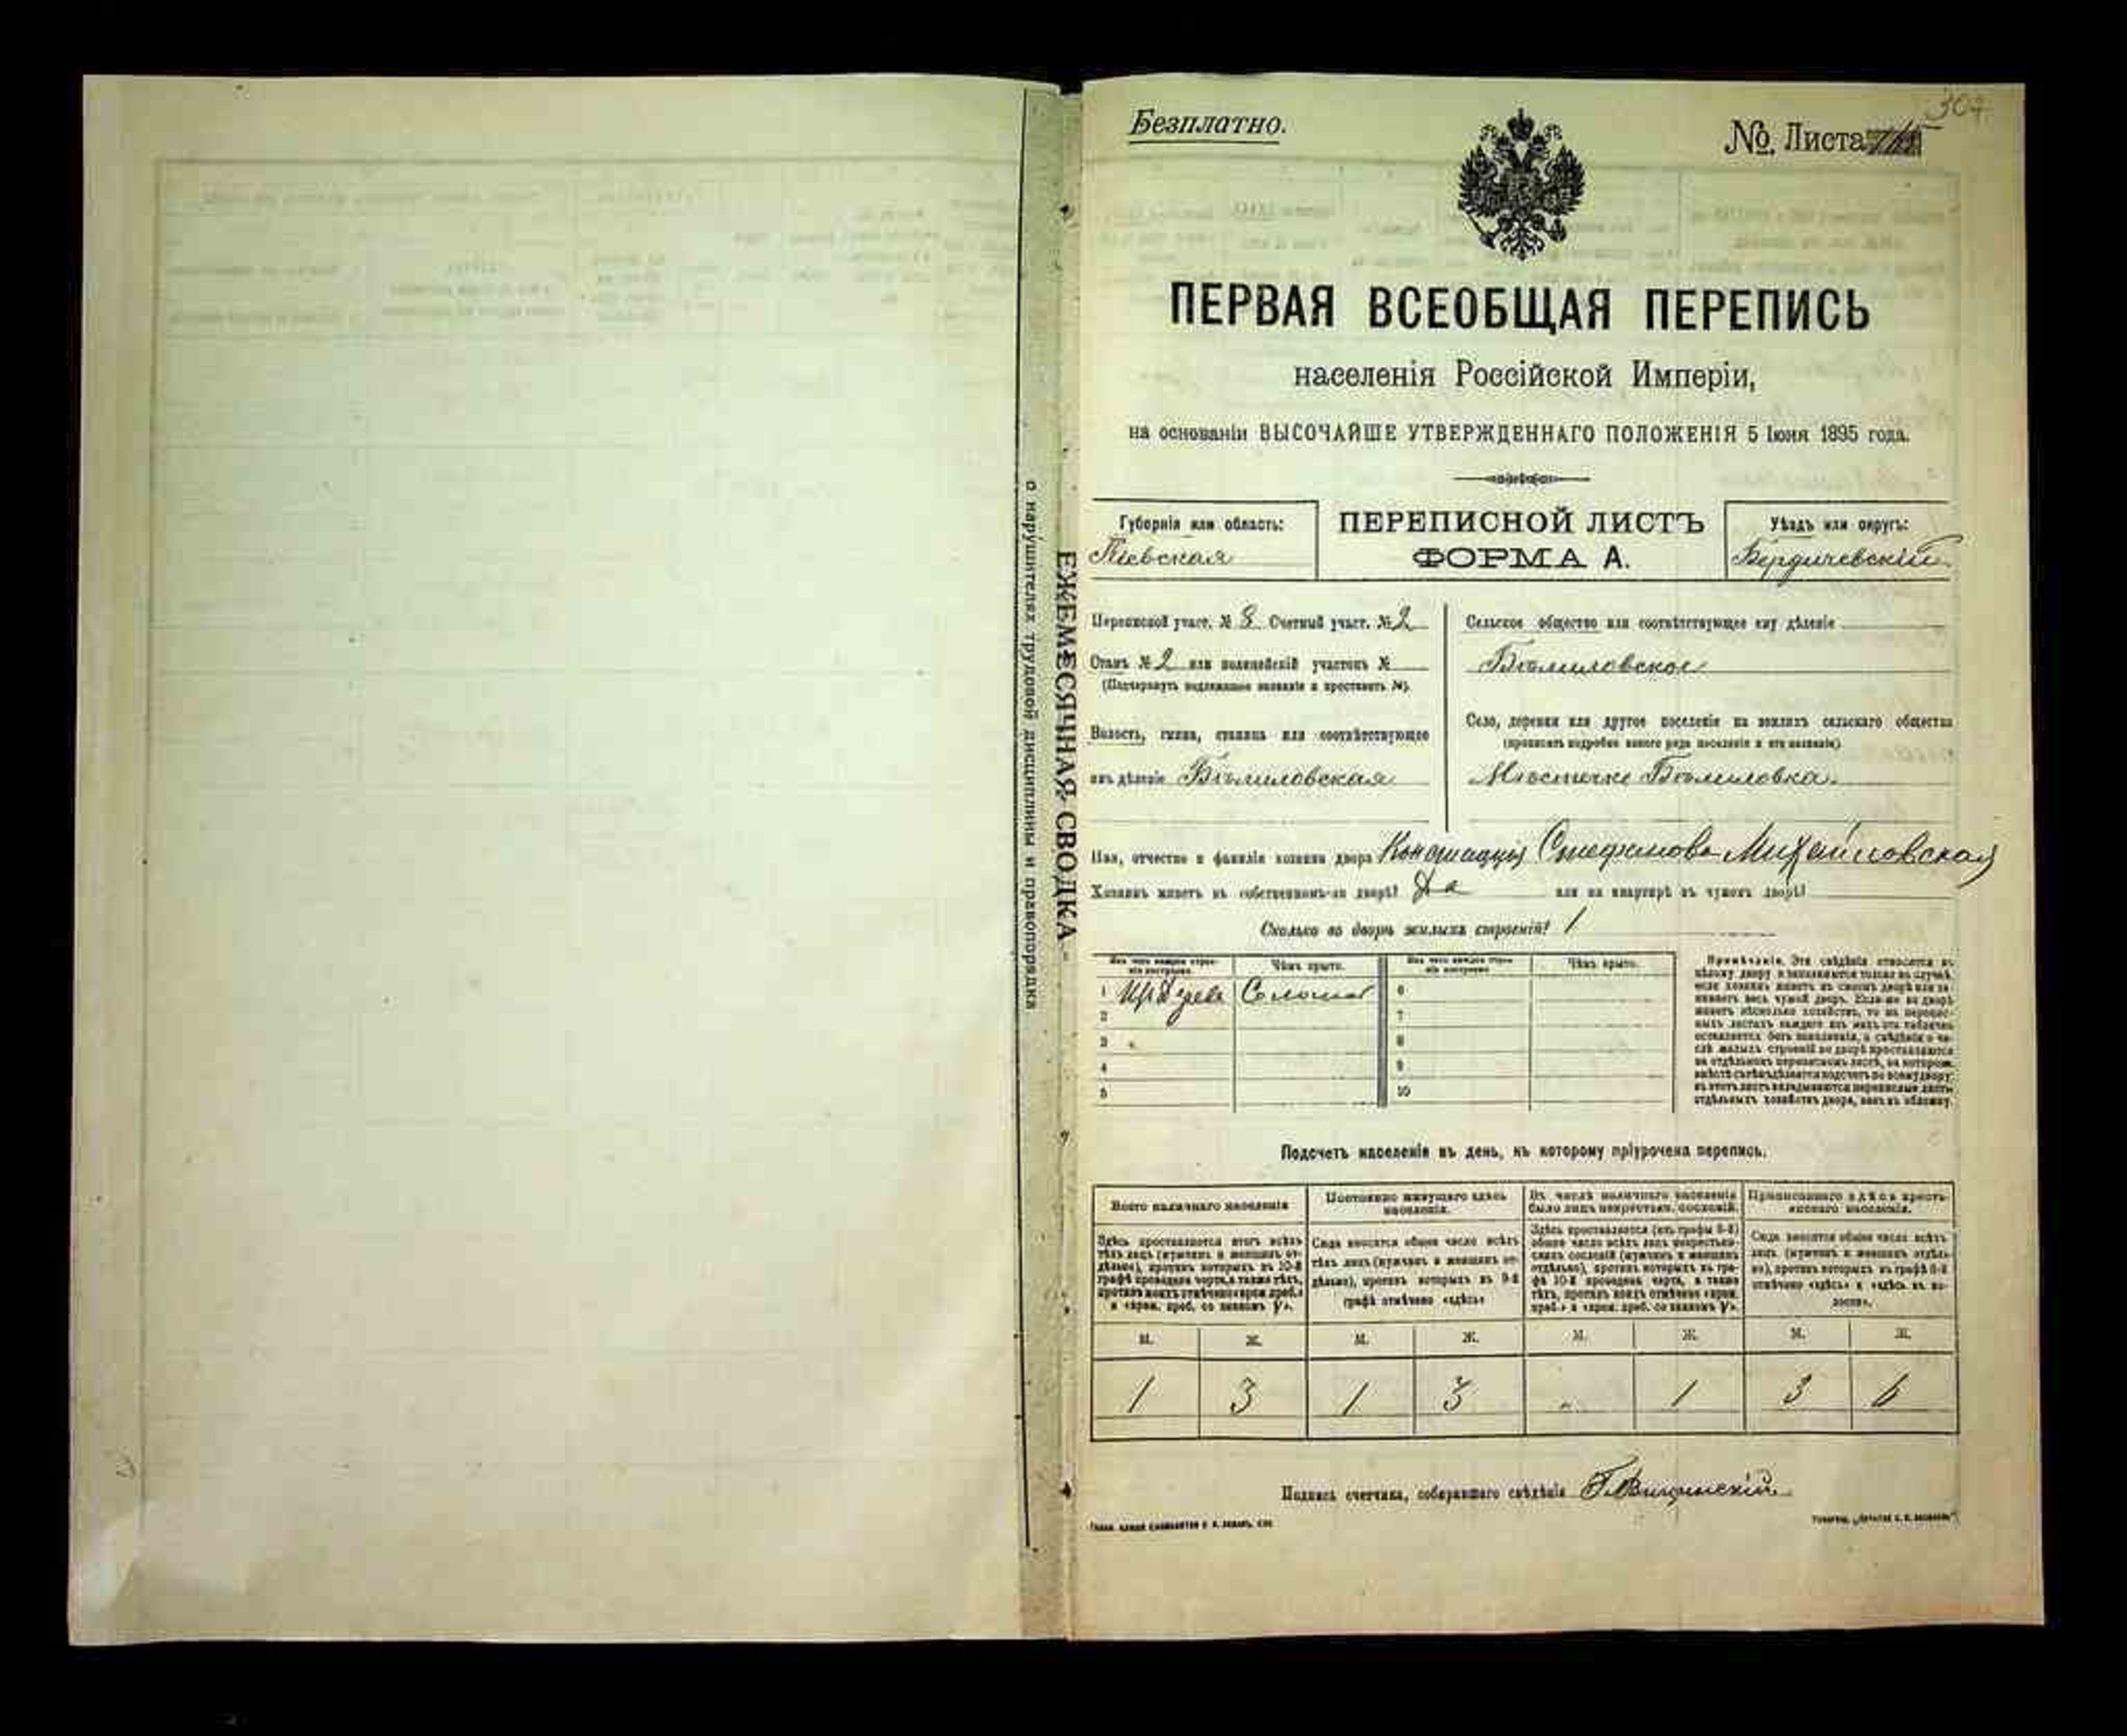 304
Безплатно.
№ Листа
ПЕРВАЯ ВСЕОБЩАЯ ПЕРЕПИСЬ
населенія Россійской Имперіи,
на основаніи ВЫСОЧАЙШЕ УТВЕРЖДЕННАГО ПОЛОЖЕНІЯ 5 Іюня 1895 года.
Губернія или область:
Кіевская
ПЕРЕПИСНОЙ ЛИСТЪ
ФОРМА А.
Уѣздъ или округъ:
Бердичевскій
Переписной участ. № 8 Счетный участ. № 2
Станъ № 2 или полицейскій участокъ №
(Подчеркнуть надлежащее названіе и проставить №).
Волость, гмина, станица или соотвѣтствующее
имъ дѣленіе Бѣлиловская
Сельское общество или соотвѣтствующее ему дѣленіе
Бѣлиловское
Село, деревня или другое поселеніе на земляхъ сельскаго общества
(прописать подробно какого рода поселеніе и его названіе)
Мѣстечко Бѣлиловка.
Имя, отчество и фамилія хозяина двора Констанція Стефанова Михайловская
Хозяинъ живетъ въ собственномъ-ли дворѣ? Да или на квартирѣ въ чужомъ дворѣ?
Сколько во дворѣ жилыхъ строеній? 1
Изъ чего каждое строеніе построено. Чѣмъ крыто. Изъ чего каждое строеніе построено Чѣмъ крыто.
1 Изъ дерева Соломой 6
2 7
3 8
4 9
5 10
Примѣчаніе. Эти свѣдѣнія относятся къ
цѣлому двору и заполняются только въ случаѣ,
если хозяинъ живетъ въ своемъ дворѣ или за-
нимаетъ весь чужой дворъ. Если-же во дворѣ
живетъ нѣсколько хозяйствъ, то на перепис-
ныхъ листахъ каждаго изъ нихъ эта табличка
оставляется безъ заполненія, а свѣдѣнія о чи-
слѣ жилыхъ строеній во дворѣ проставляются
на отдѣльномъ переписномъ листѣ, на которомъ
вмѣстѣ съ тѣмъ дѣлается подсчетъ по всему двору;
въ этотъ листъ вкладываются переписные листы
отдѣльныхъ хозяйствъ двора, какъ въ обложку.
Подсчетъ населенія въ день, къ которому пріурочена перепись.
Всего наличнаго населенія
Здѣсь проставляется итогъ всѣхъ
тѣхъ лицъ (мужчинъ и женщинъ от-
дѣльно), противъ которыхъ въ 10-й
графѣ проведена черта, а также тѣхъ,
противъ коихъ отмѣчено «врем. преб.»
и «врем. преб. со знакомъ V».
Постоянно живущаго здѣсь
населенія.
Сюда вносится общее число всѣхъ
тѣхъ лицъ (мужчинъ и женщинъ от-
дѣльно), противъ которыхъ въ 9-й
графѣ отмѣчено «здѣсь»
Въ числѣ наличнаго населенія
было лицъ некрестьян. сословій.
Здѣсь проставляется (изъ графы 8-й)
общее число всѣхъ лицъ некрестьян-
скихъ сословій (мужчинъ и женщинъ
отдѣльно), противъ которыхъ въ гра-
фѣ 10-й проведена черта, а также
тѣхъ, противъ коихъ отмѣчено «врем.
преб.» и «врем. преб. со знакомъ V».
Приписаннаго здѣсь кресть-
янскаго населенія.
Сюда вносится общее число всѣхъ
лицъ (мужчинъ и женщинъ отдѣль-
но), противъ которыхъ въ графѣ 8-й
отмѣчено «здѣсь» и «здѣсь въ во-
лости».
М. Ж. М. Ж. М. Ж. М. Ж.
1 3 1 3 „ 1 3 6
Подпись счетчика, собиравшаго свѣдѣнія
ЕЖЕМЕСЯЧНАЯ СВОДКА
о нарушителях трудовой дисциплины и правопорядка